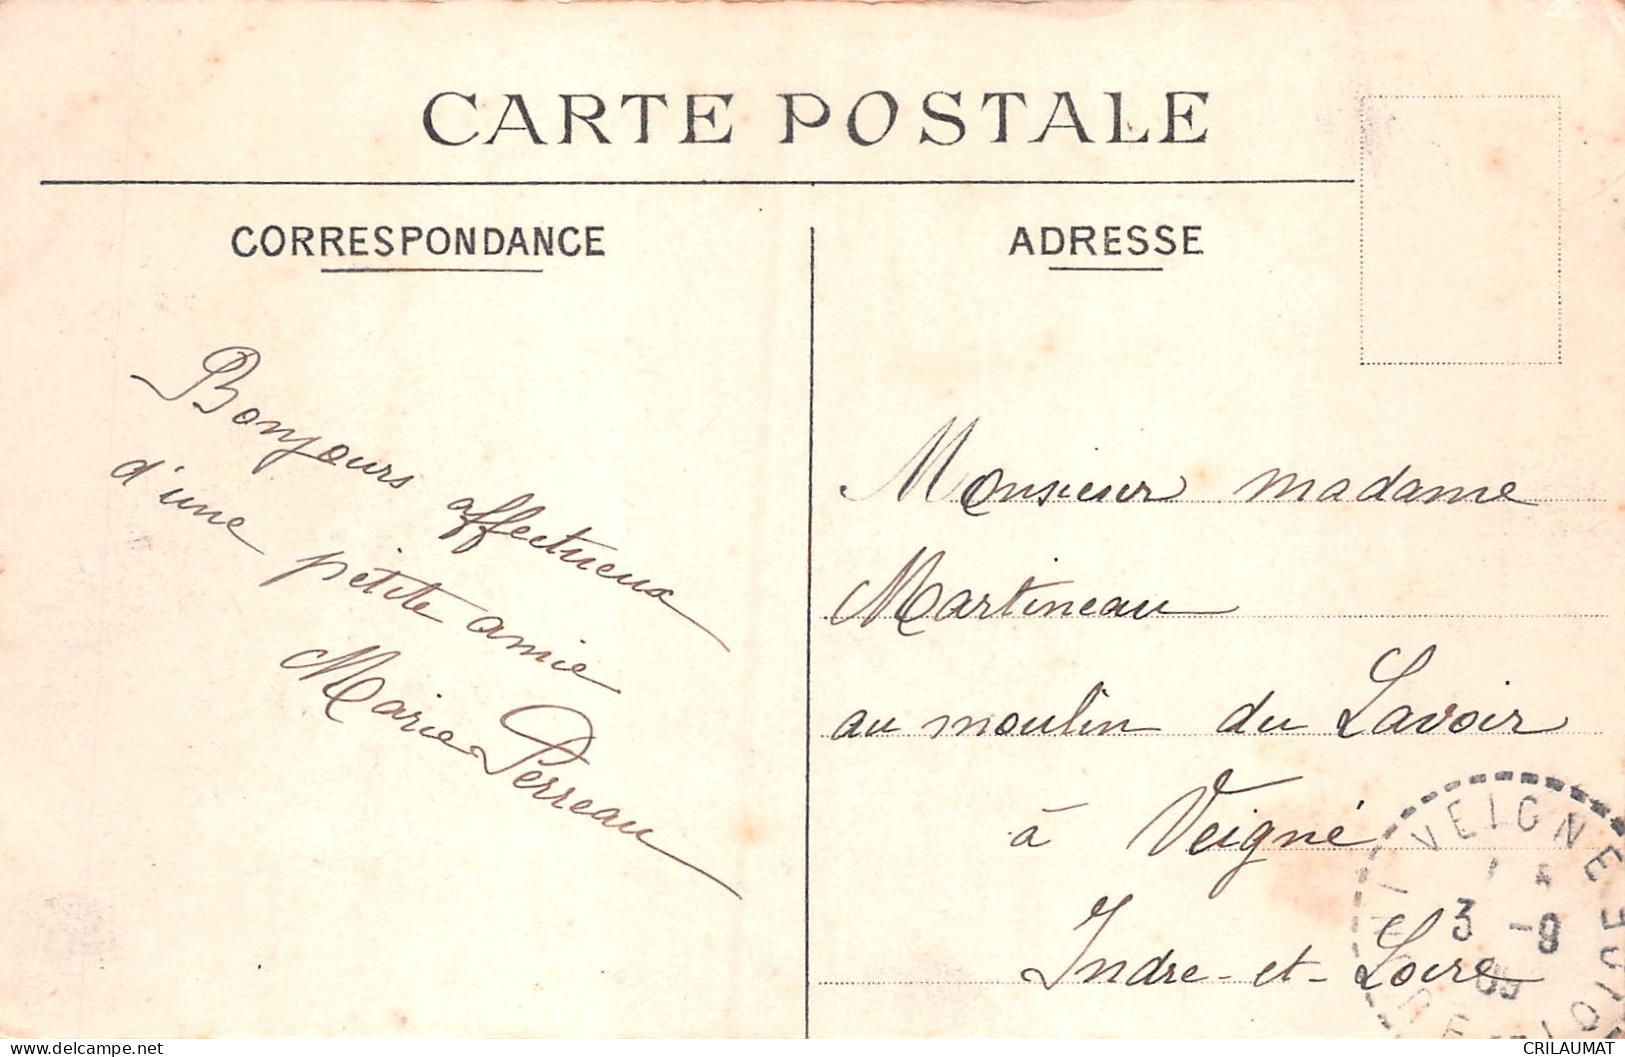 CARTE POSTALE
CORRESPONDANCE
ADRESSE
Bonjours affectueux
d'une petite amie
Marie Perreau
Monsieur madame
Martineau
au moulin du Lavoir
à Veigné
Indre-et-Loire
VEIGNE
3 -9
09
CRILAUMAT